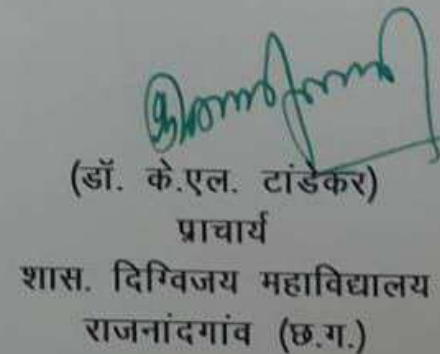 (डॉ. के.एल. टांडेकर)
प्राचार्य
शास. दिग्विजय महाविद्यालय
राजनांदगांव (छ.ग.)